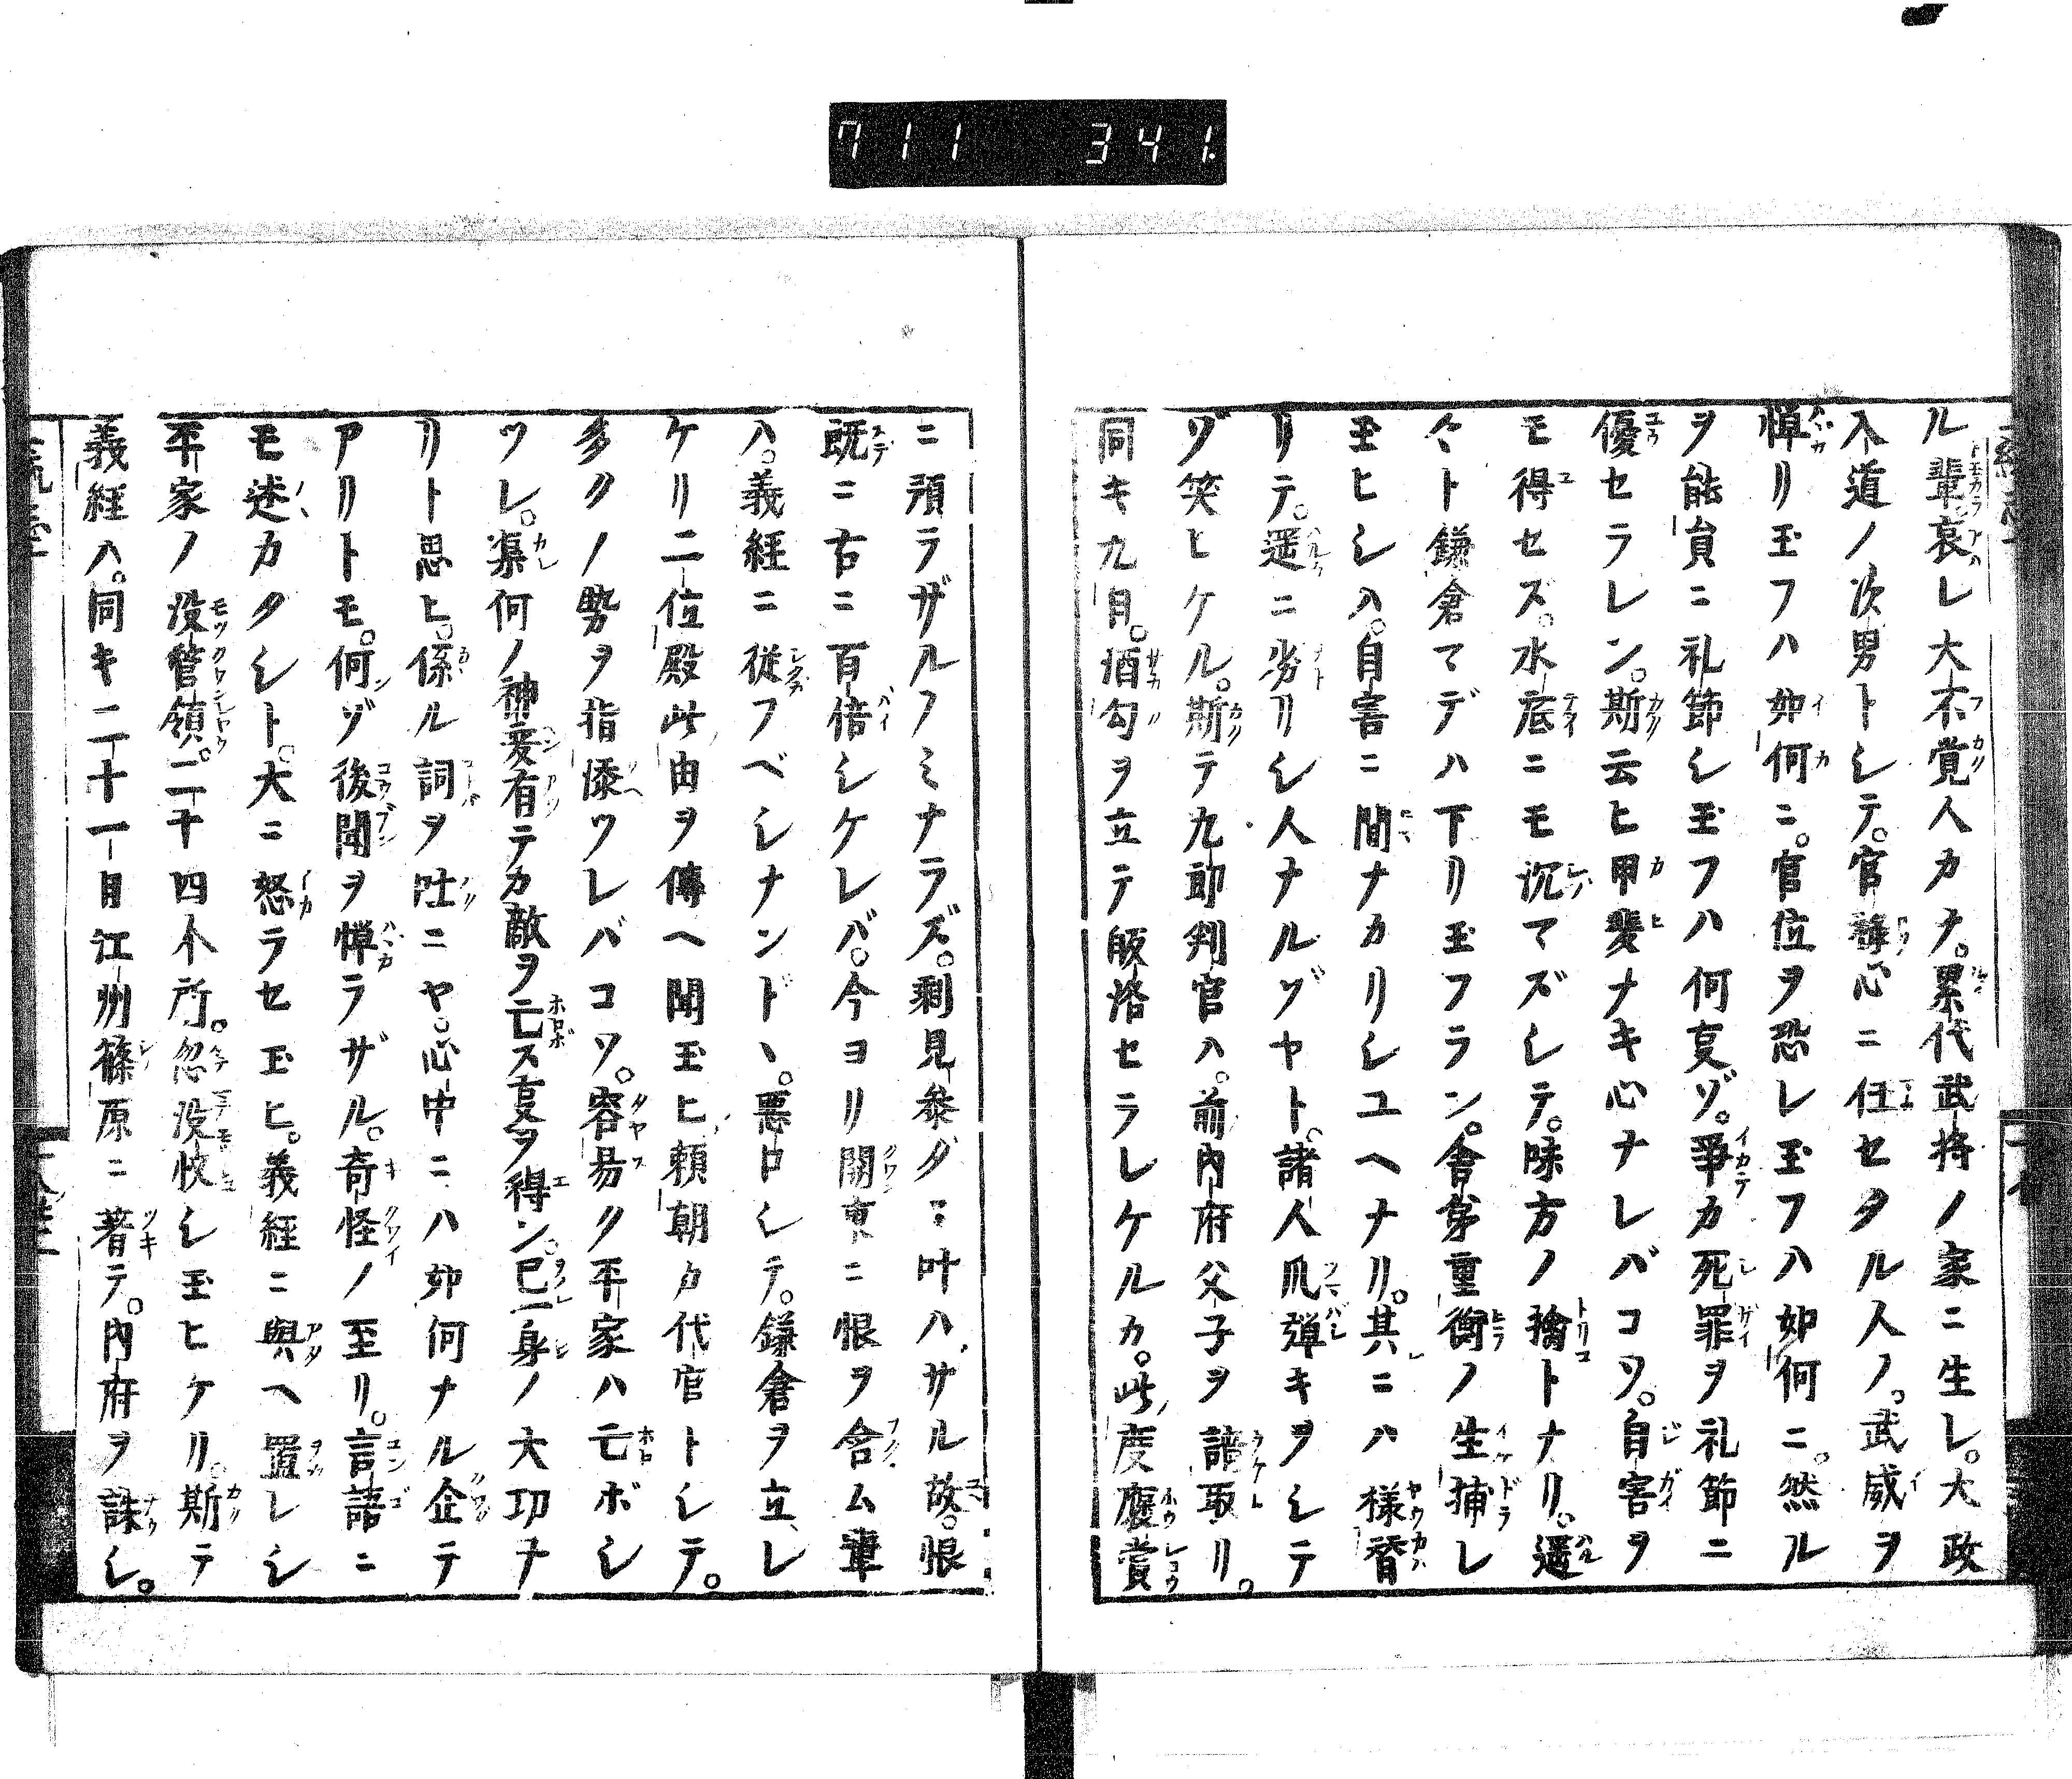 711 341.
ル輩。哀レ大不覚人カナ。累代武将ノ家ニ生レ。大政
入道ノ次男トシテ。官祿心ニ任セタル人ノ。武威ヲ
憚リ玉フハ如何ニ。官位ヲ恐レ玉フハ如何ニ。然ル
ヲ能員ニ礼節シ玉フハ何㕝ゾ。争カ死罪ヲ礼節ニ
優セラレン。斯云ヒ甲斐ナキ心ナレバコソ。自害ヲ
モ得セズ。水底ニモ沉マズシテ。味方ノ擒トナリ。遥
々ト鎌倉マデハ下リ玉フラン。舎弟重衡ノ生捕レ
玉ヒシハ。自害ニ間ナカリシユヘナリ。其ニハ様替
リテ。遥ニ劣リシ人ナルゾヤト。諸人爪弾キヲシテ
ゾ笑ヒケル。斯テ九郎判官ハ。前内府父子ヲ請取リ。
同キ九日。酒匂ヲ立テ皈洛セラレケルカ。此度褒賞
ニ預ラザルノミナラズ。剰見参ダニ叶ハサル故。恨
既ニ古ニ百倍シケレバ。今ヨリ關東ニ恨ヲ含ム輩
ハ。義経ニ従フベシナンド、。悪口シテ。鎌倉ヲ立レ
ケリ二位殿此由ヲ傳ヘ聞玉ヒ頼朝カ代官トシテ。
多クノ勢ヲ指添ツレバコソ。容易ク平家ハ亡ボシ
ツレ。渠何ノ神変有テカ敵ヲ亡ス㕝ヲ得ン。已一身ノ大功ナ
リト思ヒ。係ル詞ヲ吐ニヤ。心中ニハ如何ナル企テ
アリトモ。何ゾ後聞ヲ憚ラザル。奇怪ノ至リ。言語ニ
モ述カタシト。大ニ怒ラセ玉ヒ。義経ニ與ヘ置レシ
平家ノ没官領。二十四个所。忽没收シ玉ヒケリ。斯テ
義経ハ。同キ二十一日江州篠原ニ著テ。内府ヲ誅シ。